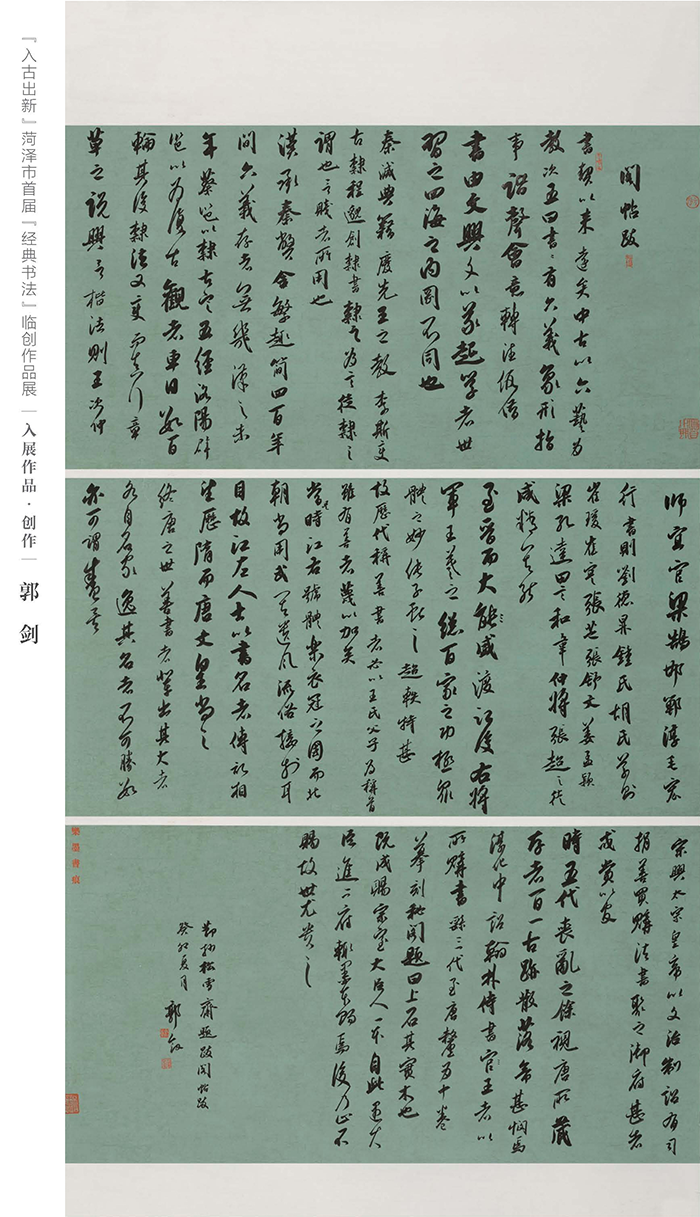 『入古出新』菏泽市首届『经典书法』临创作品展｜入展作品·创作｜郭 剑
阁帖跋
书契以来远矣中古以六艺为
教次五曰书书有六义象形指
事谐声会意转注假借
书由文兴文以义起学者世
习之四海之内罔不同也
秦灭典籍废先王之教李斯变
古隶程邈创隶书隶之为言徒隶之
谓也言贱者所用也
汉承秦弊舍繁趋简四百年
间六义存者无几汉之末
年蔡邕以隶古定五经洛阳辟
邕以为复古观者车日数百
辆其后隶法又变而真行章
草之说兴言楷法则王次仲
师宜官梁鹄邯郸淳毛宏
行书则刘德昇钟氏胡氏草则
崔瑗崔寔张芝张舒文姜孟颖
梁孔达田彦和韦仲将张超之徒
咸精其能
至晋而大盛渡江后右将
军王羲之总百家之功极众
体之妙传子献之超轶特甚
故历代称善书者必以王氏父子为称首
虽有善者蔑以加矣
当时江右号体乐衣冠之国而北
朝尚用武其遗风流俗接于耳
目故江左人士以书名者传记相
望历隋而唐文皇尚之
终唐之世善书者辈出其大者
各自名家逸其名者不可胜数
亦可谓盛矣
宋兴太宗皇帝以文治制诏有司
捐善贾购法书聚之御府甚者
或赏以官
时五代丧乱之余视唐所藏
存者百一古迹散落帝甚悯焉
淳化中诏翰林侍书官王著以
所购书繇三代至唐厘为十卷
摹刻秘阁题曰上石其实木也
既成赐宗室大臣人一本自此遇大
臣进二府辄墨本赐焉后乃止不
赐故世尤贵之
节抄松雪斋题跋阁帖跋
癸卯夏月
郭剑
乐墨书痕